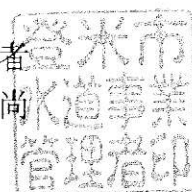 者尚
登米市
水道事業
管理者印